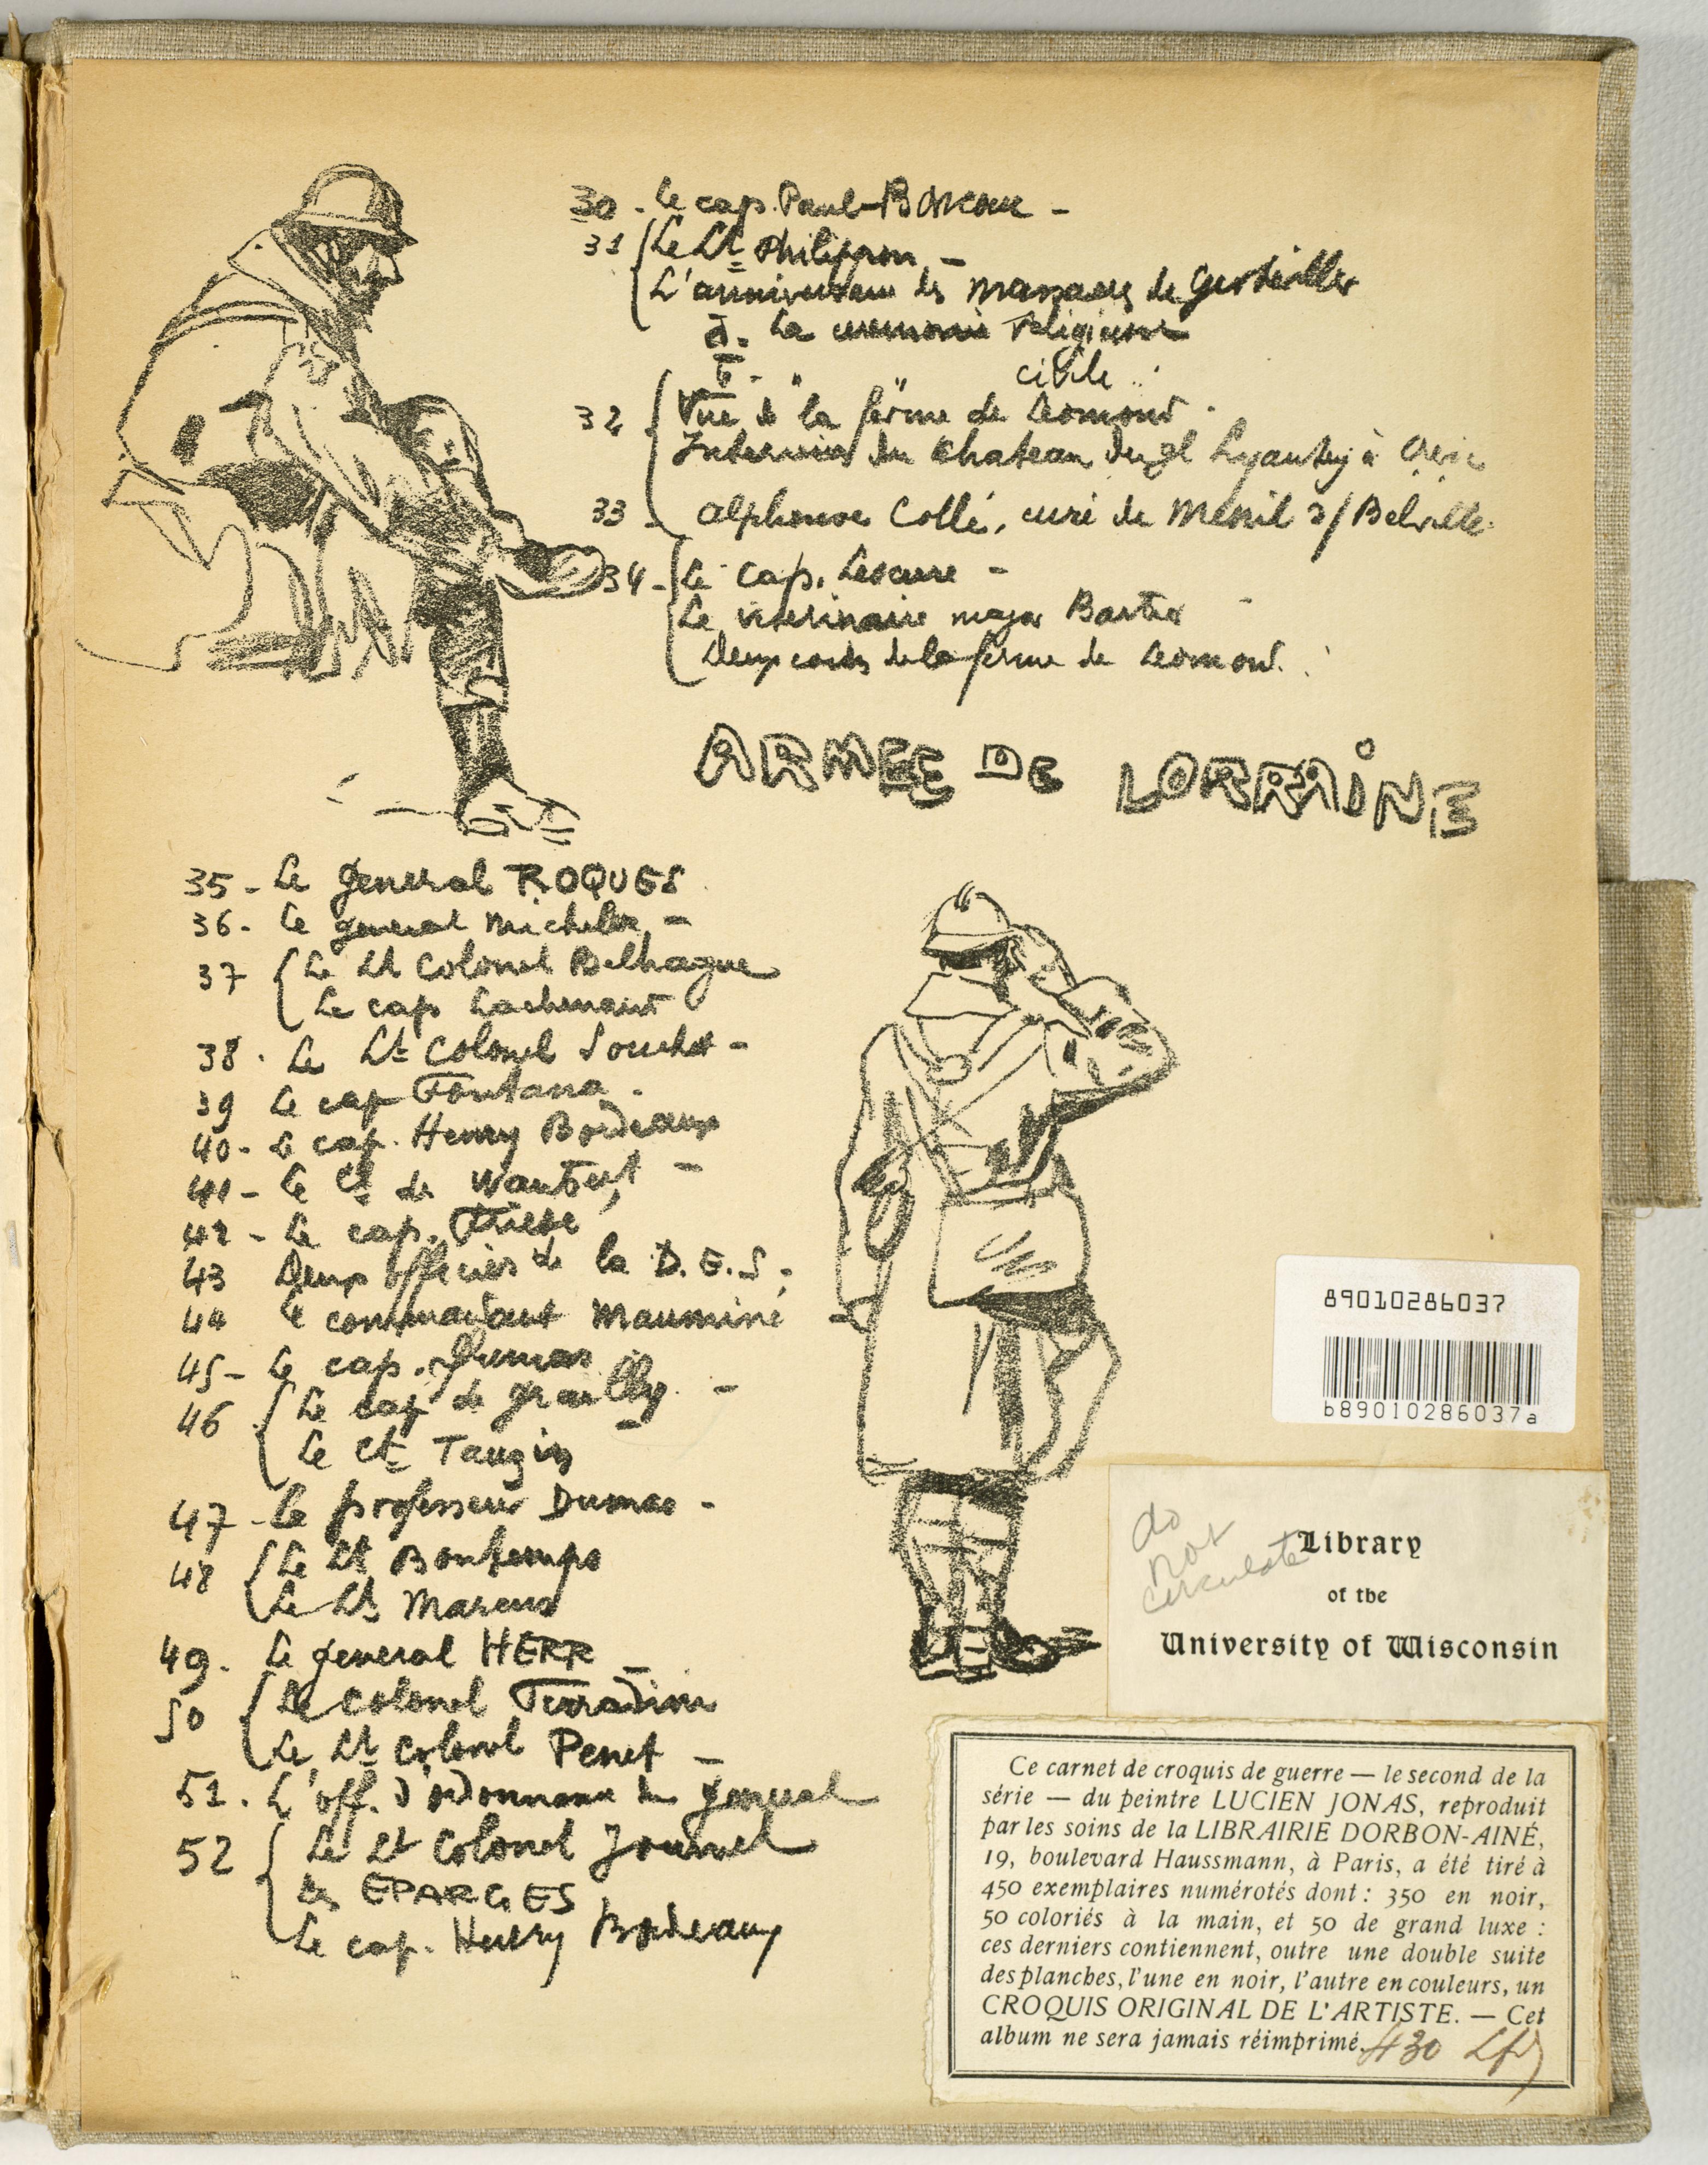 30 - Le cap. Paul-Boncour -
31 Le Lt Philippon -
L'anniversaire des massacres de Gerbéviller
a. La ceremonie religieuse
b. " " civile
32 Vue de la ferme de Leomont.
Interieur du chateau du gl Lyautey à Crévic
33 - Alphonse Collé, curé de Menil s/Belvitte
34 - Le Cap. Lescure -
Le veterinaire major Barthe
Deux coins de la ferme de Leomont.
ARMEE DE LORRAINE
35 - Le general ROQUES
36 - Le general Micheler -
37 Le Lt Colonel Belhague
Le cap Lachenaud
38 . Le Lt Colonel Souchet -
39 Le cap Fontana.
40 - Le cap. Henry Bordeaux
41 - Le Ct de -
42 - Le cap.
43 Deux officiers de la D. E. S.
44 Le commandant Mauminé
45 - Le cap. Dumas
46 Le cap de Grailly. -
Le Ct Taugin
47 - Le professeur Dumas -
48 Le Lt Bontemps
Le Lt Marcus
49. Le general HERR -
50 Le Colonel
Le Lt Colonel Penet -
51. L'off. d'ordonnance du general
52 Le Lt Colonel Journel
Les EPARGES
Le cap. Henry Bordeaux
89010286037
b89010286037a
do
not
circulate
Library
of the
University of Wisconsin
Ce carnet de croquis de guerre — le second de la
série — du peintre LUCIEN JONAS, reproduit
par les soins de la LIBRAIRIE DORBON-AINÉ,
19, boulevard Haussmann, à Paris, a été tiré à
450 exemplaires numérotés dont : 350 en noir,
50 coloriés à la main, et 50 de grand luxe :
ces derniers contiennent, outre une double suite
des planches, l'une en noir, l'autre en couleurs, un
CROQUIS ORIGINAL DE L'ARTISTE. — Cet
album ne sera jamais réimprimé. 430